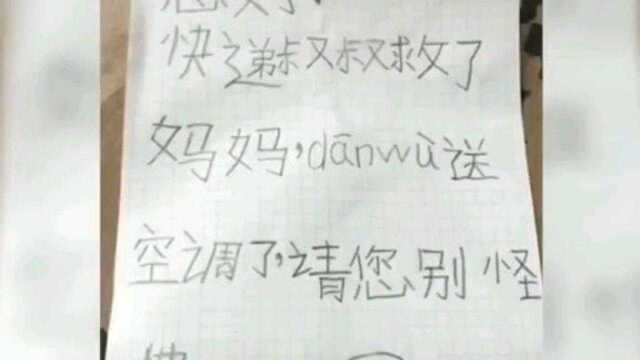 快递叔叔救了
妈妈,dānwù送
空调了,请您别怪